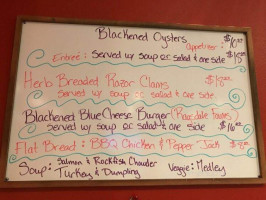 Blackened Oysters
Appetizer: $10.00
Entrée: Served w/ soup or salad & one side $15
Herb Breaded Razor Clams $18.00
Served w/ soup or salad & one side
Blackened Blue Cheese Burger (Rawrdale Farms)
Served w/ soup or salad & one side $16.00
Flat Bread: BBQ Chicken & Pepper Jack $8.00
Soup: Salmon & Rockfish Chowder Veggie: Medley
Turkey & Dumpling